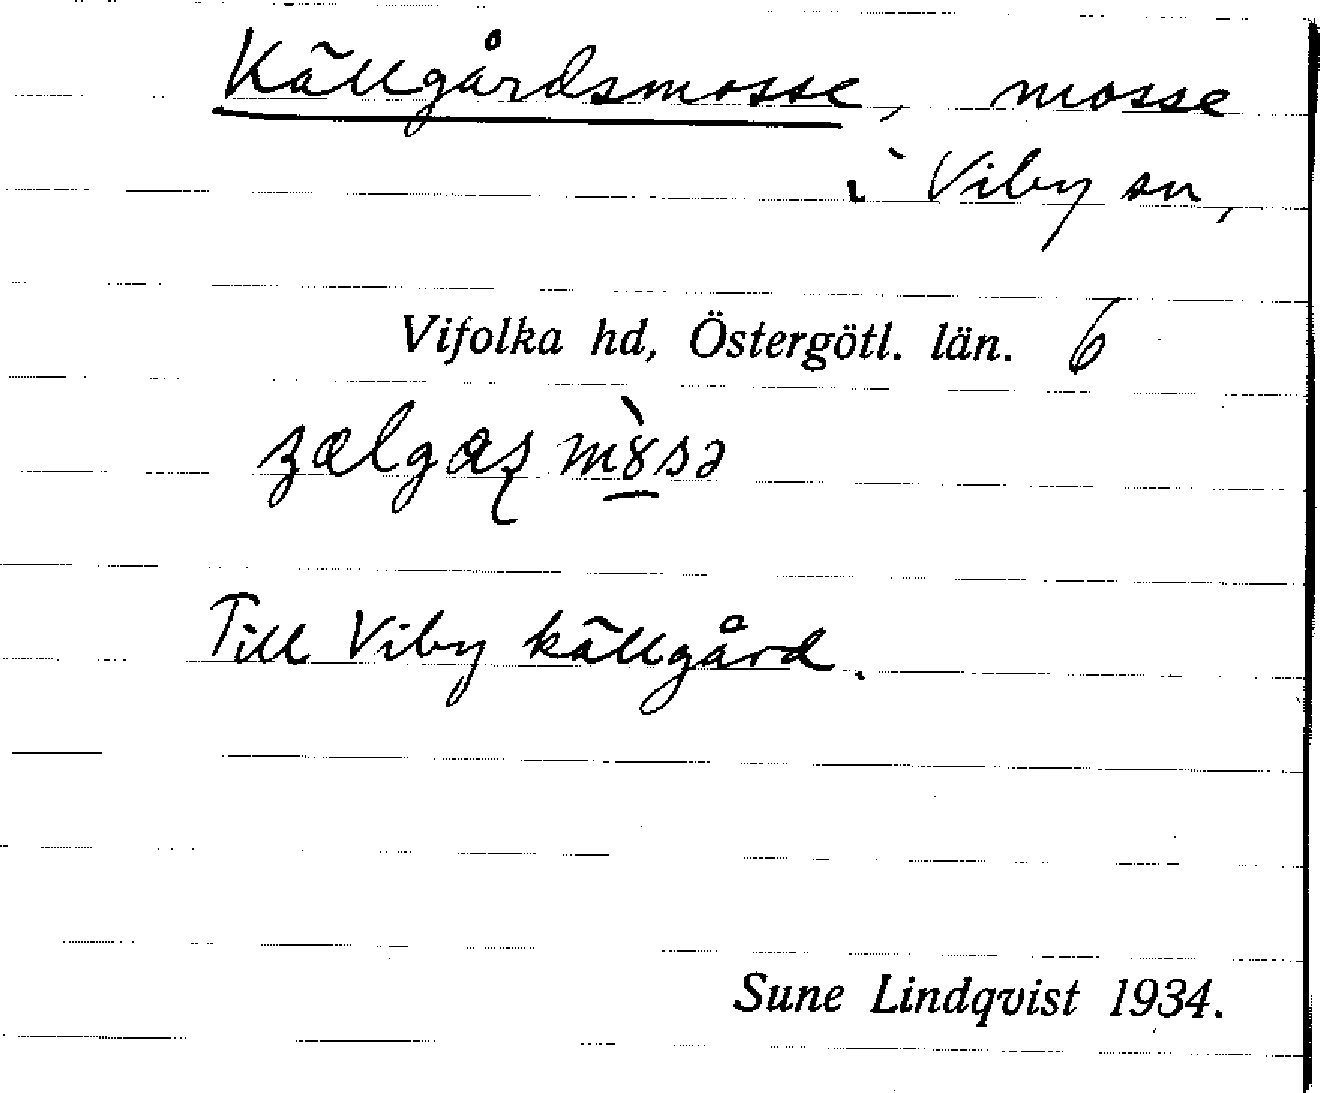 Källgårdsmosse, mosse
i Viby sn,
Vifolka hd, Östergötl. län. 6
Till Viby källgård.
Sune Lindqvist 1934.